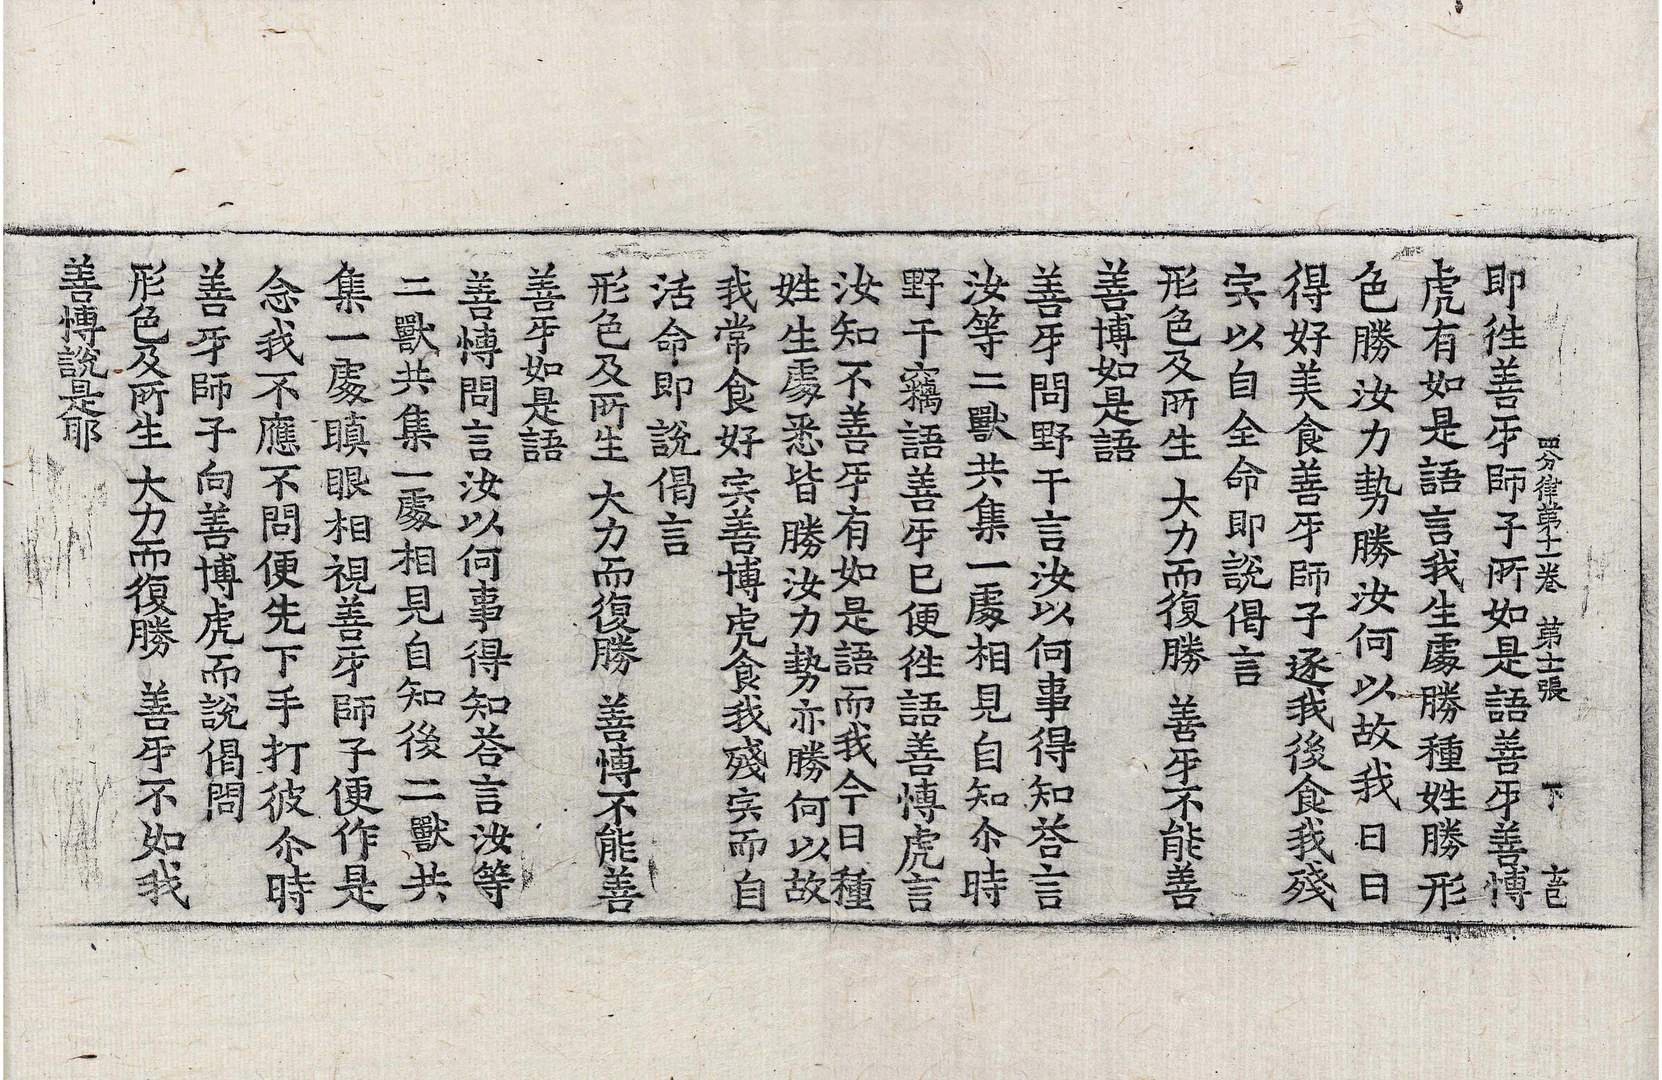 四分律第十一卷　第十二張　下
即徃善牙師子所如是語善牙善愽
虎有如是語言我生處勝種姓勝形
色勝汝力勢勝汝何以故我日日
得好美食善牙師子逐我後食我殘
宍以自全命即說偈言
形色及所生　大力而復勝　善牙不能善
善博如是語
善牙問野干言汝以何事得知荅言
汝等二獸共集一處相見自知尒時
野干竊語善牙已便徃語善愽虎言
汝知不善牙有如是語而我今日種
姓生處悉皆勝汝力勢亦勝何以故
我常食好宍善博虎食我殘宍而自
活命即說偈言
形色及所生　大力而復勝　善愽不能善
善牙如是語
善愽問言汝以何事得知荅言汝等
二獸共集一處相見自知後二獸共
集一處瞋眼相視善牙師子便作是
念我不應不問便先下手打彼尒時
善牙師子向善博虎而說偈問
形色及所生　大力而復勝　善牙不如我
善愽說是耶